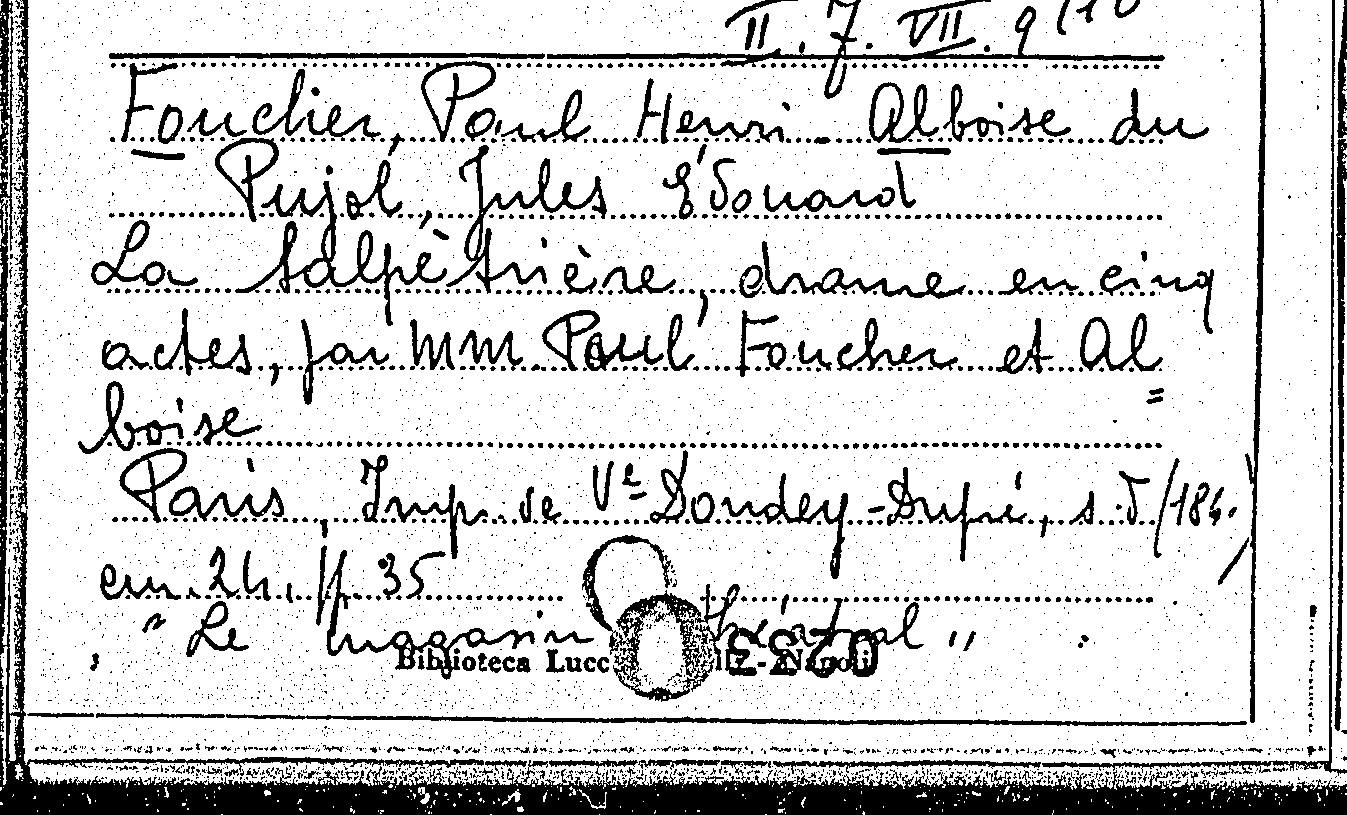 II. 7. VII. 9 (10
Foucher, Paul Henri - Alboise du
Pujol, Jules Edouard
La Salpètrière, drame en cinq
actes, par MM. Paul Foucher et Al
=
boise
Paris, Imp. de Vᵉ Dondey-Dupré, s.d./184.
cm. 24, pp. 35
"Le magasin théatral"
Biblioteca Lucc Napoli